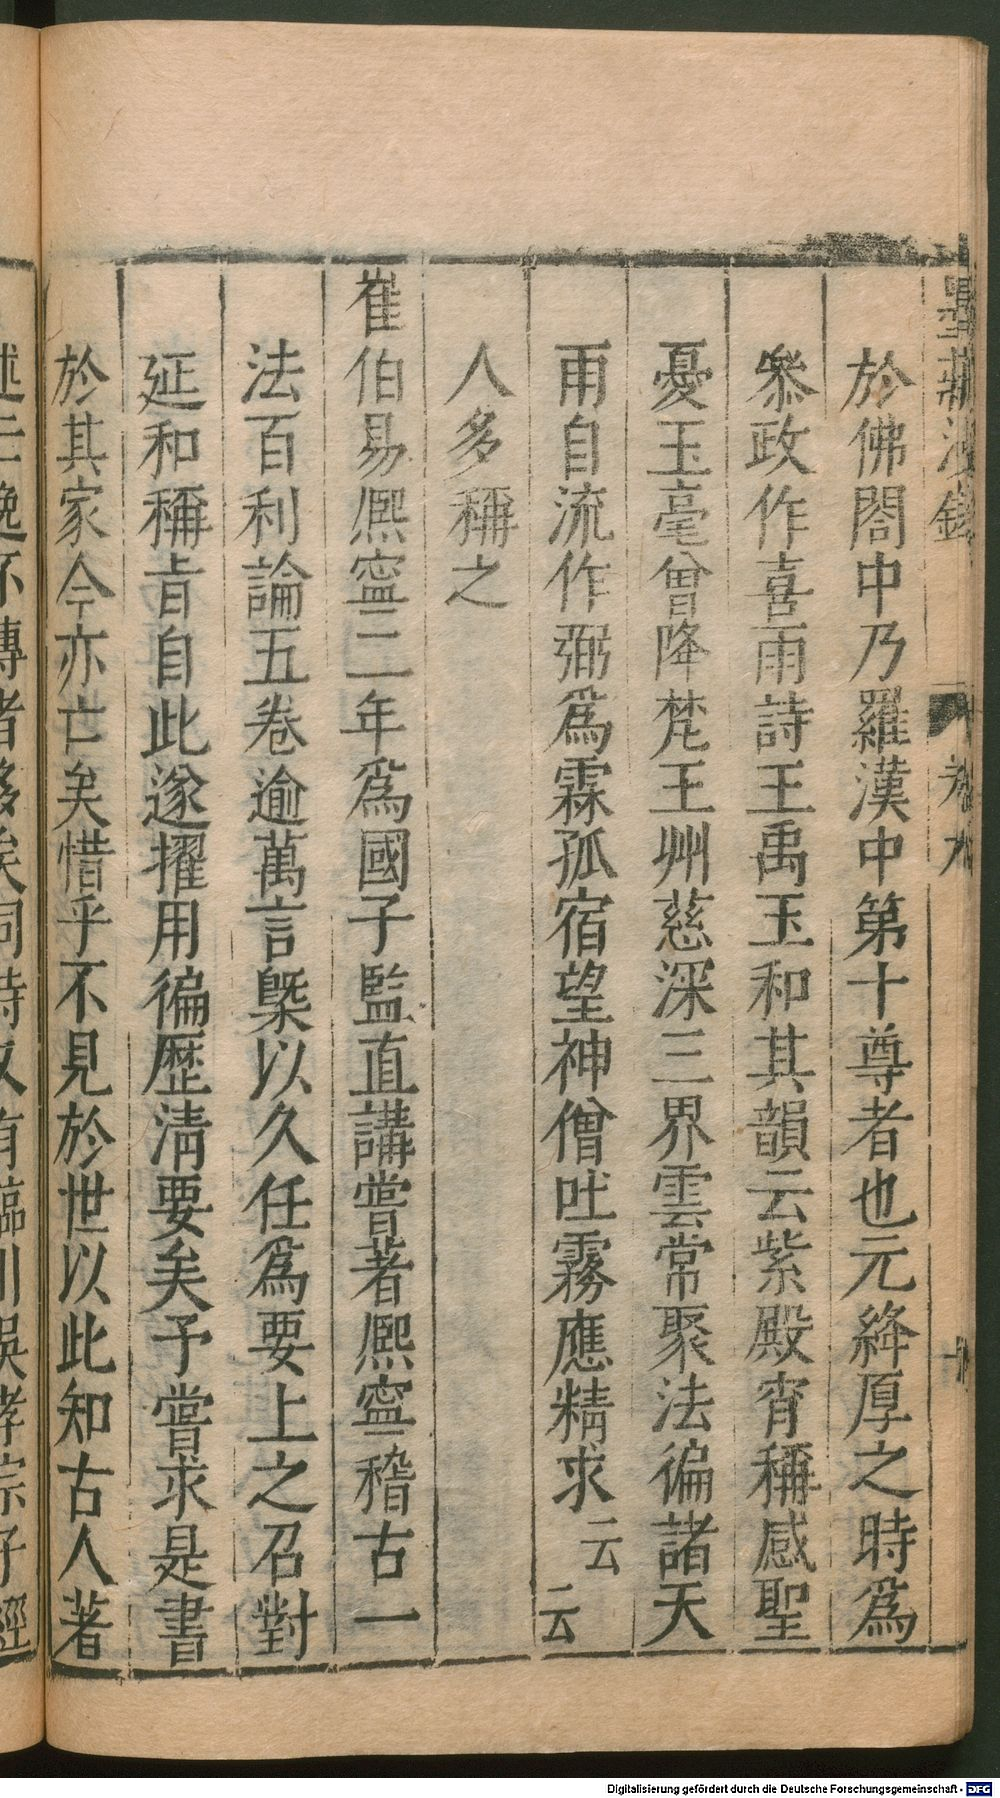 墨莊漫錄 卷九 十
於佛閤中乃羅漢中第十尊者也元絳厚之時爲
叅政作喜雨詩王禹玉和其韻云紫殿宵稱感聖
憂玉毫曾降梵王州慈深三界雲常聚法徧諸天
雨自流作弼爲霖孤宿望神僧吐霧應精求云云
人多稱之
崔伯易熈寧二年爲國子監直講嘗著熈寧稽古一
法百利論五卷逾萬言槩以久任爲要上之召對
延和稱旨自此遂擢用徧歷淸要矣予嘗求是書
於其家今亦亡矣惜乎不見於世以此知古人著
述亡逸不傳者多矣同時又有臨川吳孝宗子經
Digitalisierung gefördert durch die Deutsche Forschungsgemeinschaft - DFG